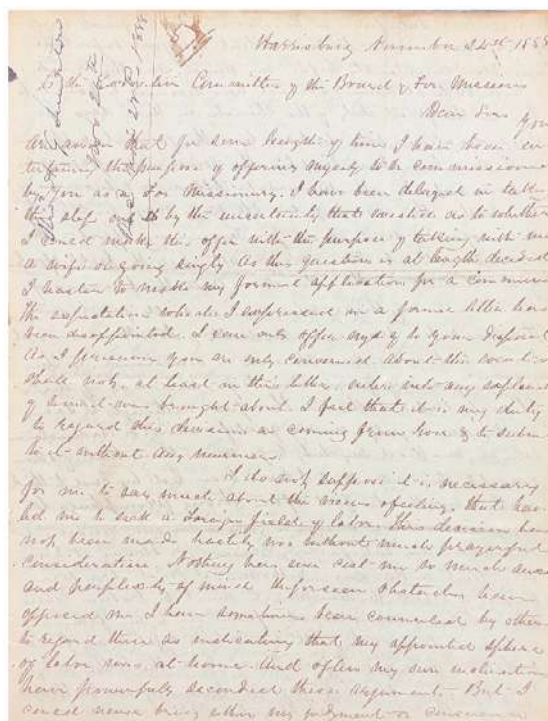 Harrisburg November 24th 185
To the Executive Committee of the Board of For. Missions
Dear Sirs You
are aware that for some length of time I have been en
tertaining the purpose of offering myself to be commissioned
by you as a For Missionary. I have been delayed in taking
this step only by the uncertainty that existed as to whether
I could make this offer with the purpose of taking with me
a wife or going singly As this question is at length decided
I hasten to make my formal application for a commission
The expectation which I expressed in a former letter has
been disappointed. I can only offer myself to your disposal
As I presume you are only concerned about the
shall not, at least in this letter, enter into any
of how it was brought about. I feel that it is my duty
to regard this decision as coming from God & to submit
to it without any murmur.
I do not suppose it is necessary
for me to say much about the of feeling that has
led me to seek a Foreign field of labor. This decision has
not been made hastily nor without much prayerful
consideration. Nothing has ever cost me so much
and perplexity of mind Unforseen obstacles have
opposed me I have sometimes been counselled by others
to regard these as indicating that my appointed sphere
of labor was at home. And often my own inclination
have powerfully seconded these arguments. But I
could never bring either my judgment or conscience